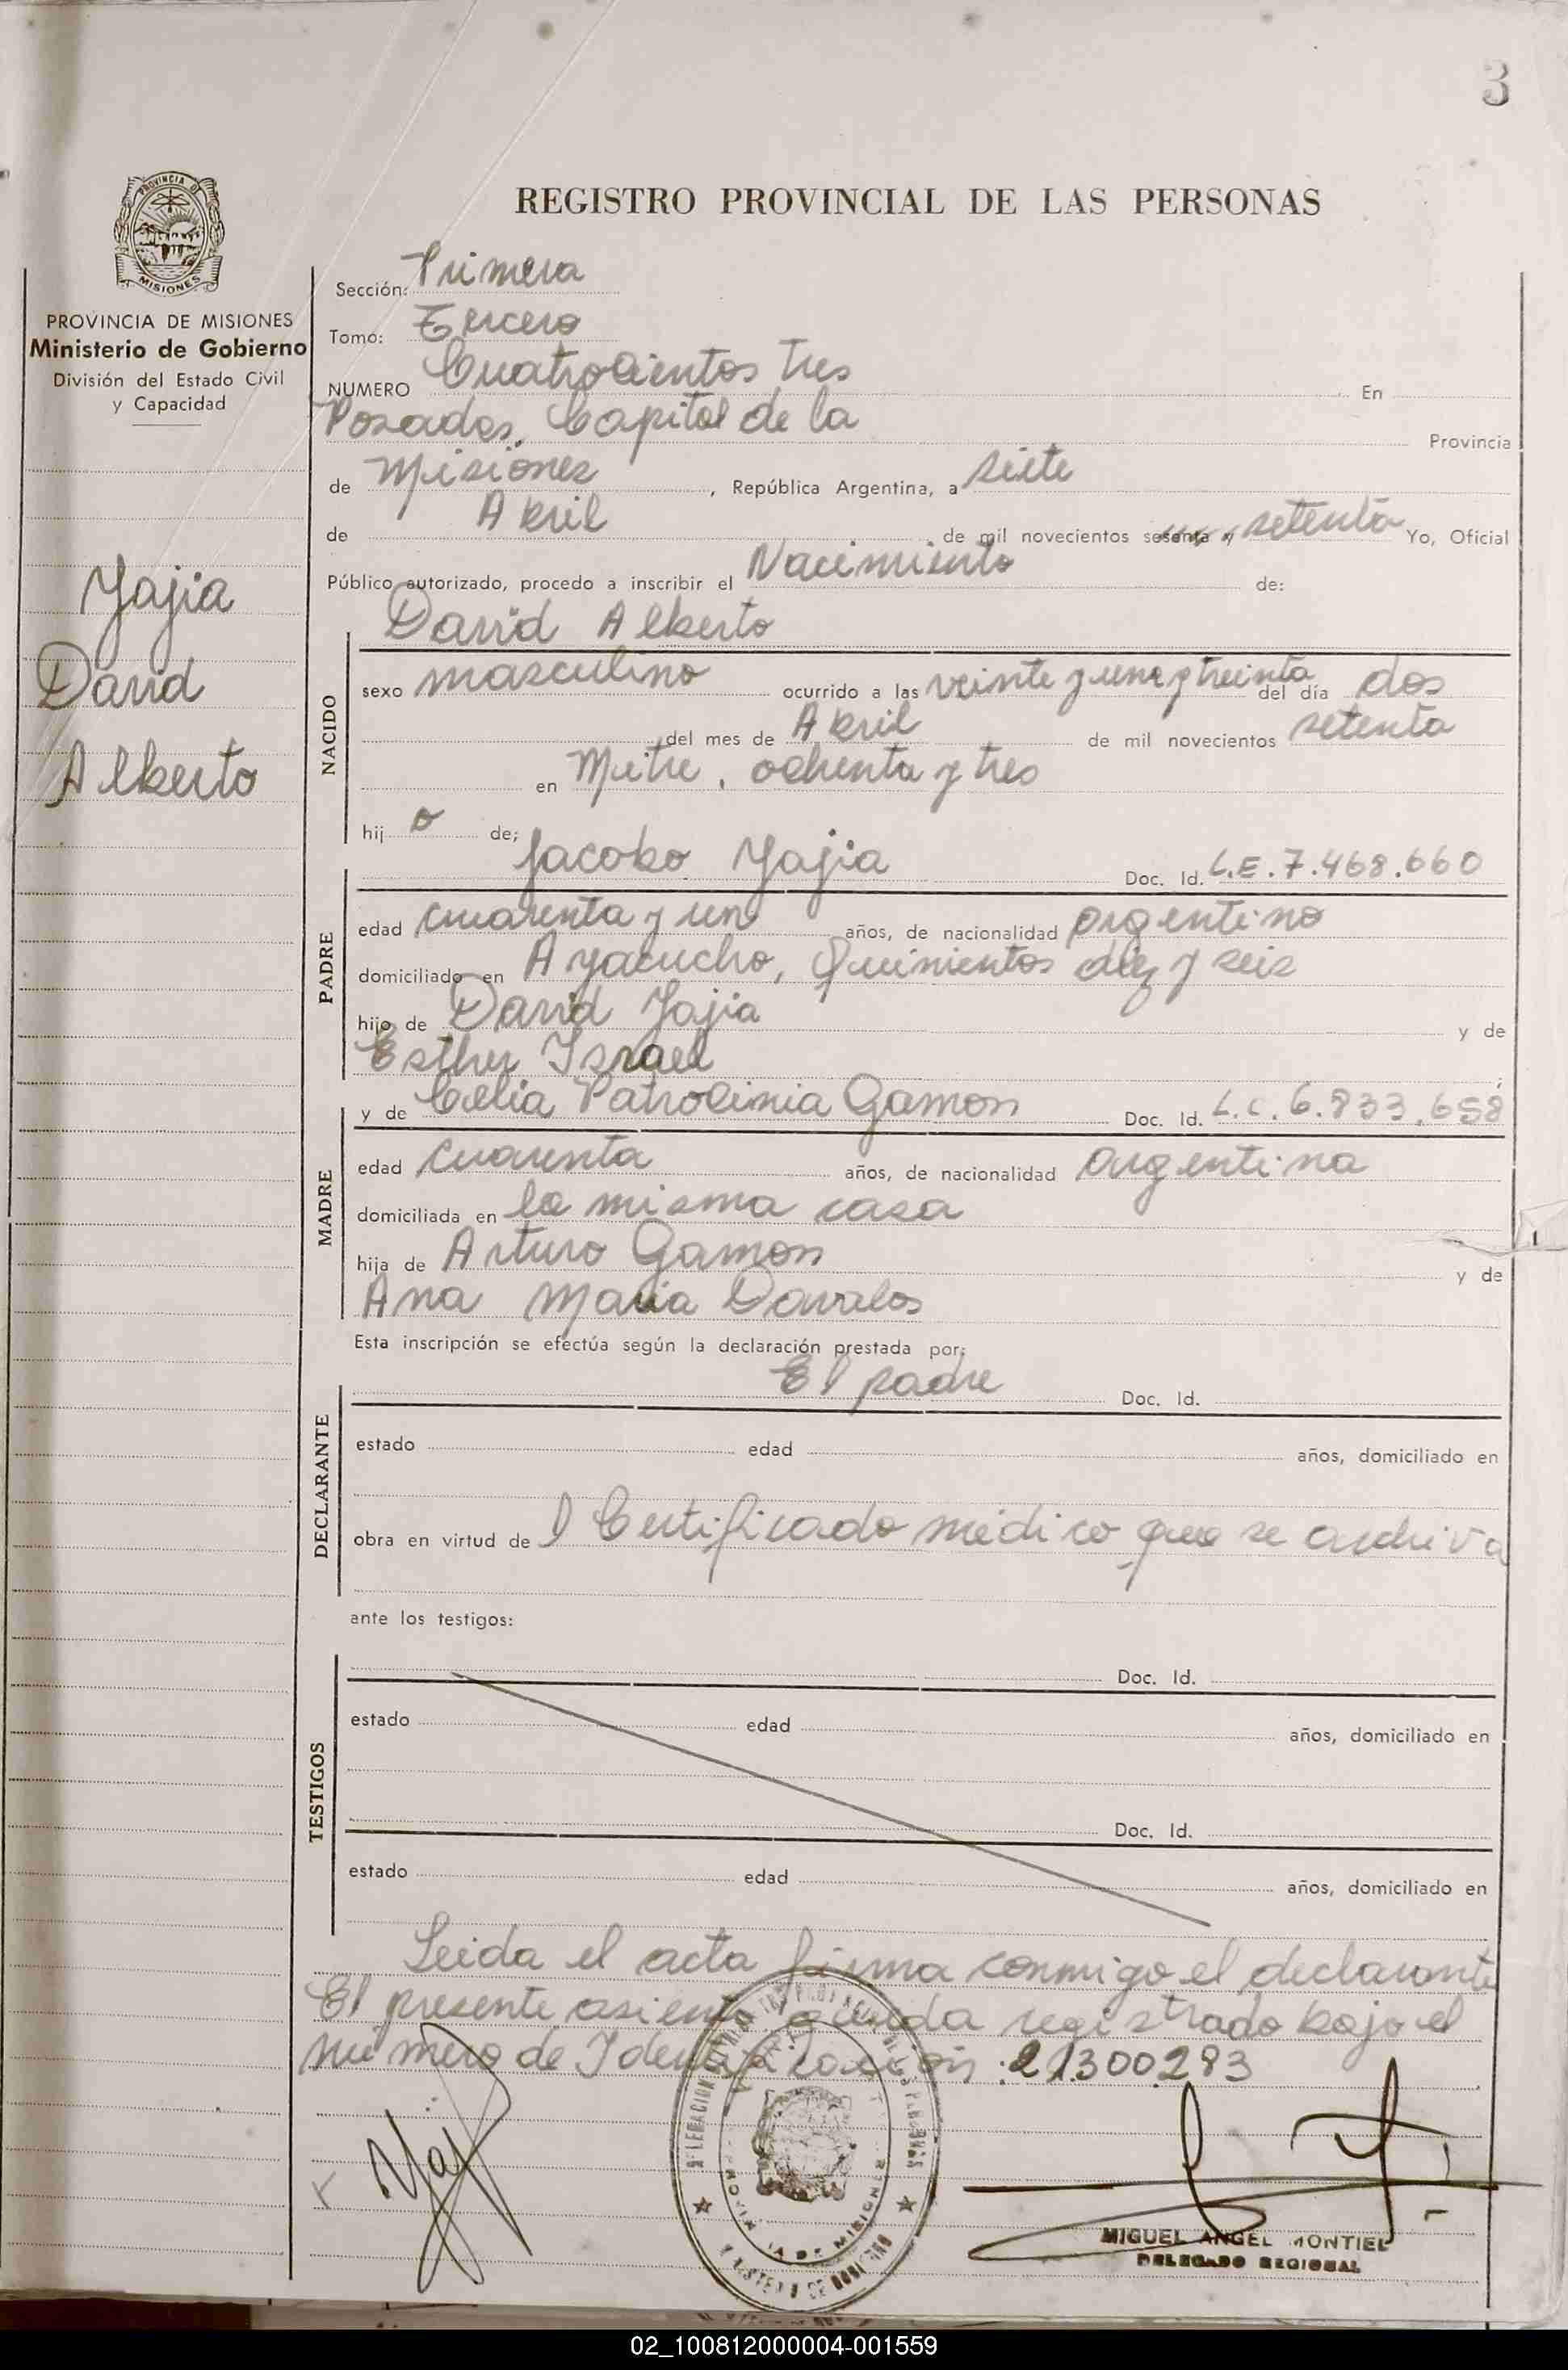 3
REGISTRO PROVINCIAL DE LAS PERSONAS
PROVINCIA DE MISIONES
Ministerio de Gobierno
División del Estado Civil
y Capacidad
Yajia
David
Alberto
Sección: Primera
Tomo: Tercero
NUMERO Cuatrocientos tres En
Posadas, Capital de la Provincia
de Misiones, República Argentina, a siete
de Abril de mil novecientos sesenta y setenta Yo, Oficial
Público autorizado, procedo a inscribir el Nacimiento de:
David Alberto
NACIDO
sexo masculino ocurrido a las veinte y una y treinta del día dos
del mes de Abril de mil novecientos setenta
en Mitre, ochenta y tres
hij o de;
Jacobo Yajia Doc. Id. L.E. 7.468.660
PADRE
edad cuarenta y un años, de nacionalidad argentino
domiciliado en Ayacucho, Quinientos diez y seis
hijo de David Yajia y de
Esther Israel
y de Celia Patrocinia Gamon Doc. Id. L.C. 6.833.658
MADRE
edad cuarenta años, de nacionalidad argentina
domiciliada en la misma casa
hija de Arturo Gamon y de
Ana Maria Davalos
Esta inscripción se efectúa según la declaración prestada por:
El padre Doc. Id.
DECLARANTE
estado edad años, domiciliado en
obra en virtud de l Certificado médico que se archiva
ante los testigos:
Doc. Id.
TESTIGOS
estado edad años, domiciliado en
Doc. Id.
estado edad años, domiciliado en
Leida el acta firma conmigo el declarante
El presente asiento queda registrado bajo el
número de Identificación: 21300283
MIGUEL ANGEL MONTIEL
DELEGADO REGIONAL
PROVINCIA DE MISIONES
02_100812000004-001559